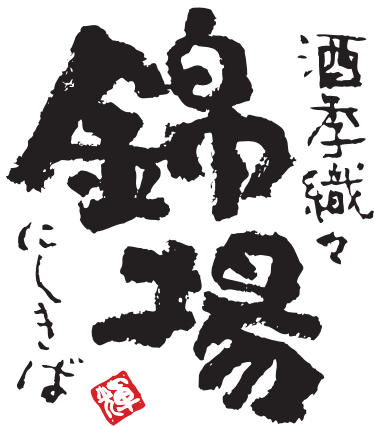 酒季織々
錦場
にしきば
輝